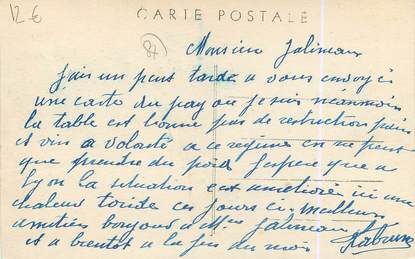 12 €
CARTE POSTALE
87
Monsieur Jalineau
j'ai un peut tardé a vous envoyé
une carte du pay ou je suis néanmoin
la table est bonne pas de restriction pain
et vin a volonté a ce régime on ne peut
que prendre du poid j'espere que a
Lyon la situation est ameliorée ici une
chaleur toride ces jours ci meilleurs
amitiées bonjour a Mme Jalineau
et a bientot a la fin du mois